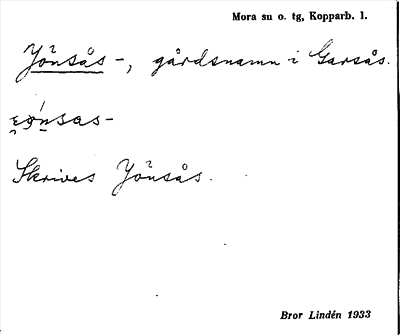 Mora su o. tg, Kopparb. l.
Jönsås -, gårdsnamn i Garsås.
Skrives Jönsås.
Bror Lindén 1933